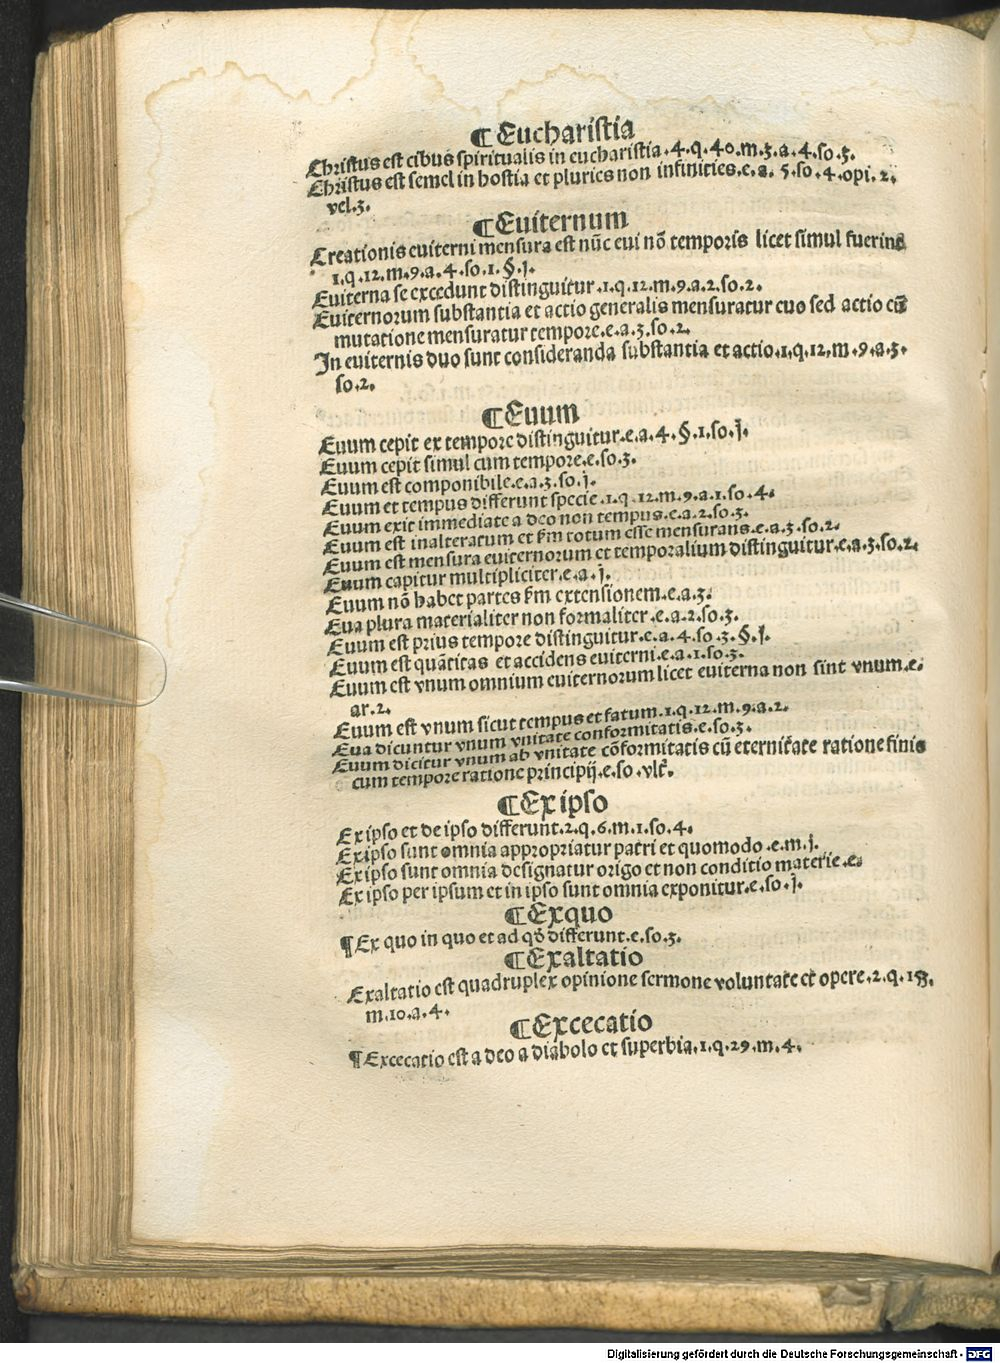 ¶Eucharistia
Christus est cibus spiritualis in eucharistia.4.q.40.m.3.a.4.so.3.
Christus est semel in hostia et pluries non infinities.e.a.5.so.4.opi.2.
vel.3.
¶Euiternum
Creationis euiterni mensura est nūc eui nō temporis licet simul fuerint
1.q.12.m.9.a.4.so.1.§.j.
Euiterna se excedunt distinguitur.1.q.12.m.9.a.2.so.2.
Euiternorum substantia et actio generalis mensuratur euo sed actio cū
mutatione mensuratur tempore.e.a.3.so.2.
In euiternis duo sunt consideranda substantia et actio.1.q.12.m.9.a.3.
so.2.
¶Euum
Euum cepit ex tempore distinguitur.e.a.4.§.1.so.j.
Euum cepit simul cum tempore.e.so.3.
Euum est componibile.e.a.3.so.j.
Euum et tempus differunt specie.1.q.12.m.9.a.1.so.4.
Euum exit immediate a deo non tempus.e.a.2.so.3.
Euum est inalteratum et ẜm totum esse mensurans.e.a.3.so.2.
Euum est mensura euiternorum et temporalium distinguitur.e.a.3.so.2.
Euum capitur multipliciter.e.a.j.
Euum nō habet partes ẜm extensionem.e.a.3.
Eua plura materialiter non formaliter.e.a.2.so.3.
Euum est prius tempore distinguitur.e.a.4.so.3.§.j.
Euum est quātitas et accidens euiterni.e.a.1.so.3.
Euum est vnum omnium euiternorum licet euiterna non sint vnum.e.
ar.2.
Euum est vnum sicut tempus et fatum.1.q.12.m.9.a.2.
Eua dicuntur vnum vnitate conformitatis.e.so.3.
Euum dicitur vnum ab vnitate cōformitatis cū eternitate ratione finis
cum tempore ratione principij.e.so.vlt̄.
¶Ex ipso
Ex ipso et de ipso differunt.2.q.6.m.1.so.4.
Ex ipso sunt omnia appropriatur patri et quomodo.e.m.j.
Ex ipso sunt omnia designatur origo et non conditio materie.e.
Ex ipso per ipsum et in ipso sunt omnia exponitur.e.so.j.
¶Exquo
¶Ex quo in quo et ad qđ differunt.e.so.3.
¶Exaltatio
Exaltatio est quadruplex opinione sermone voluntate et opere.2.q.18.
m.10.a.4.
¶Excecatio
¶Excecatio est a deo a diabolo et superbia.1.q.29.m.4.
Digitalisierung gefördert durch die Deutsche Forschungsgemeinschaft - DFG